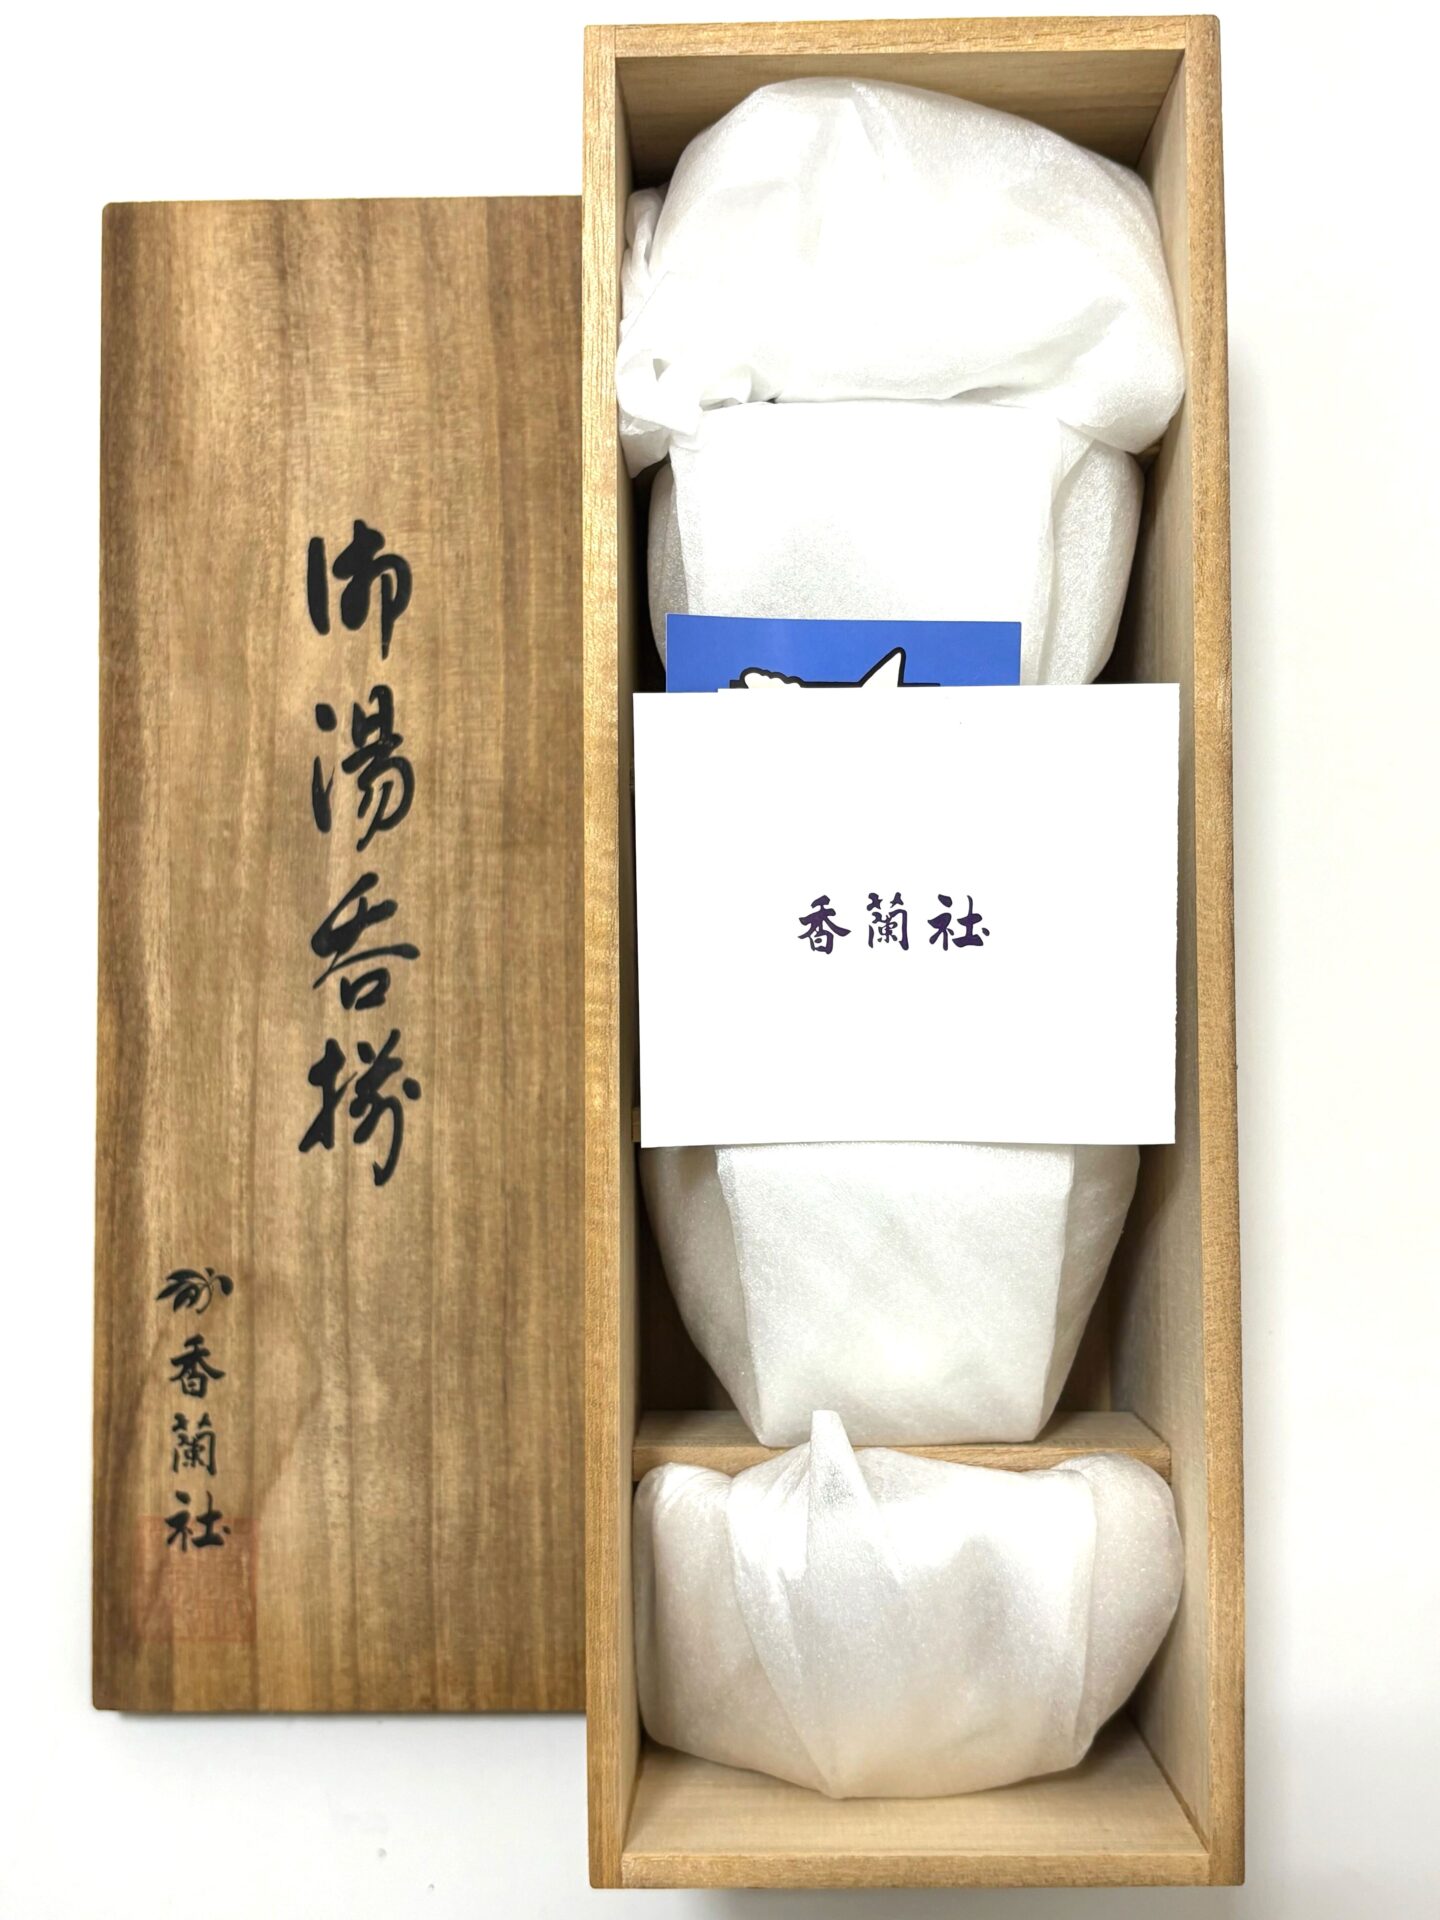 御湯呑揃
香蘭社
香蘭社